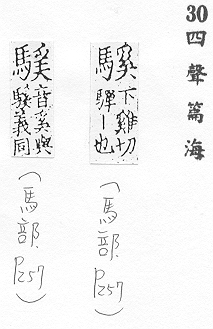 30四聲篇海
騱下雞切
驒—也
(馬部 P257)
音奚與
騱義同
(馬部 P257)